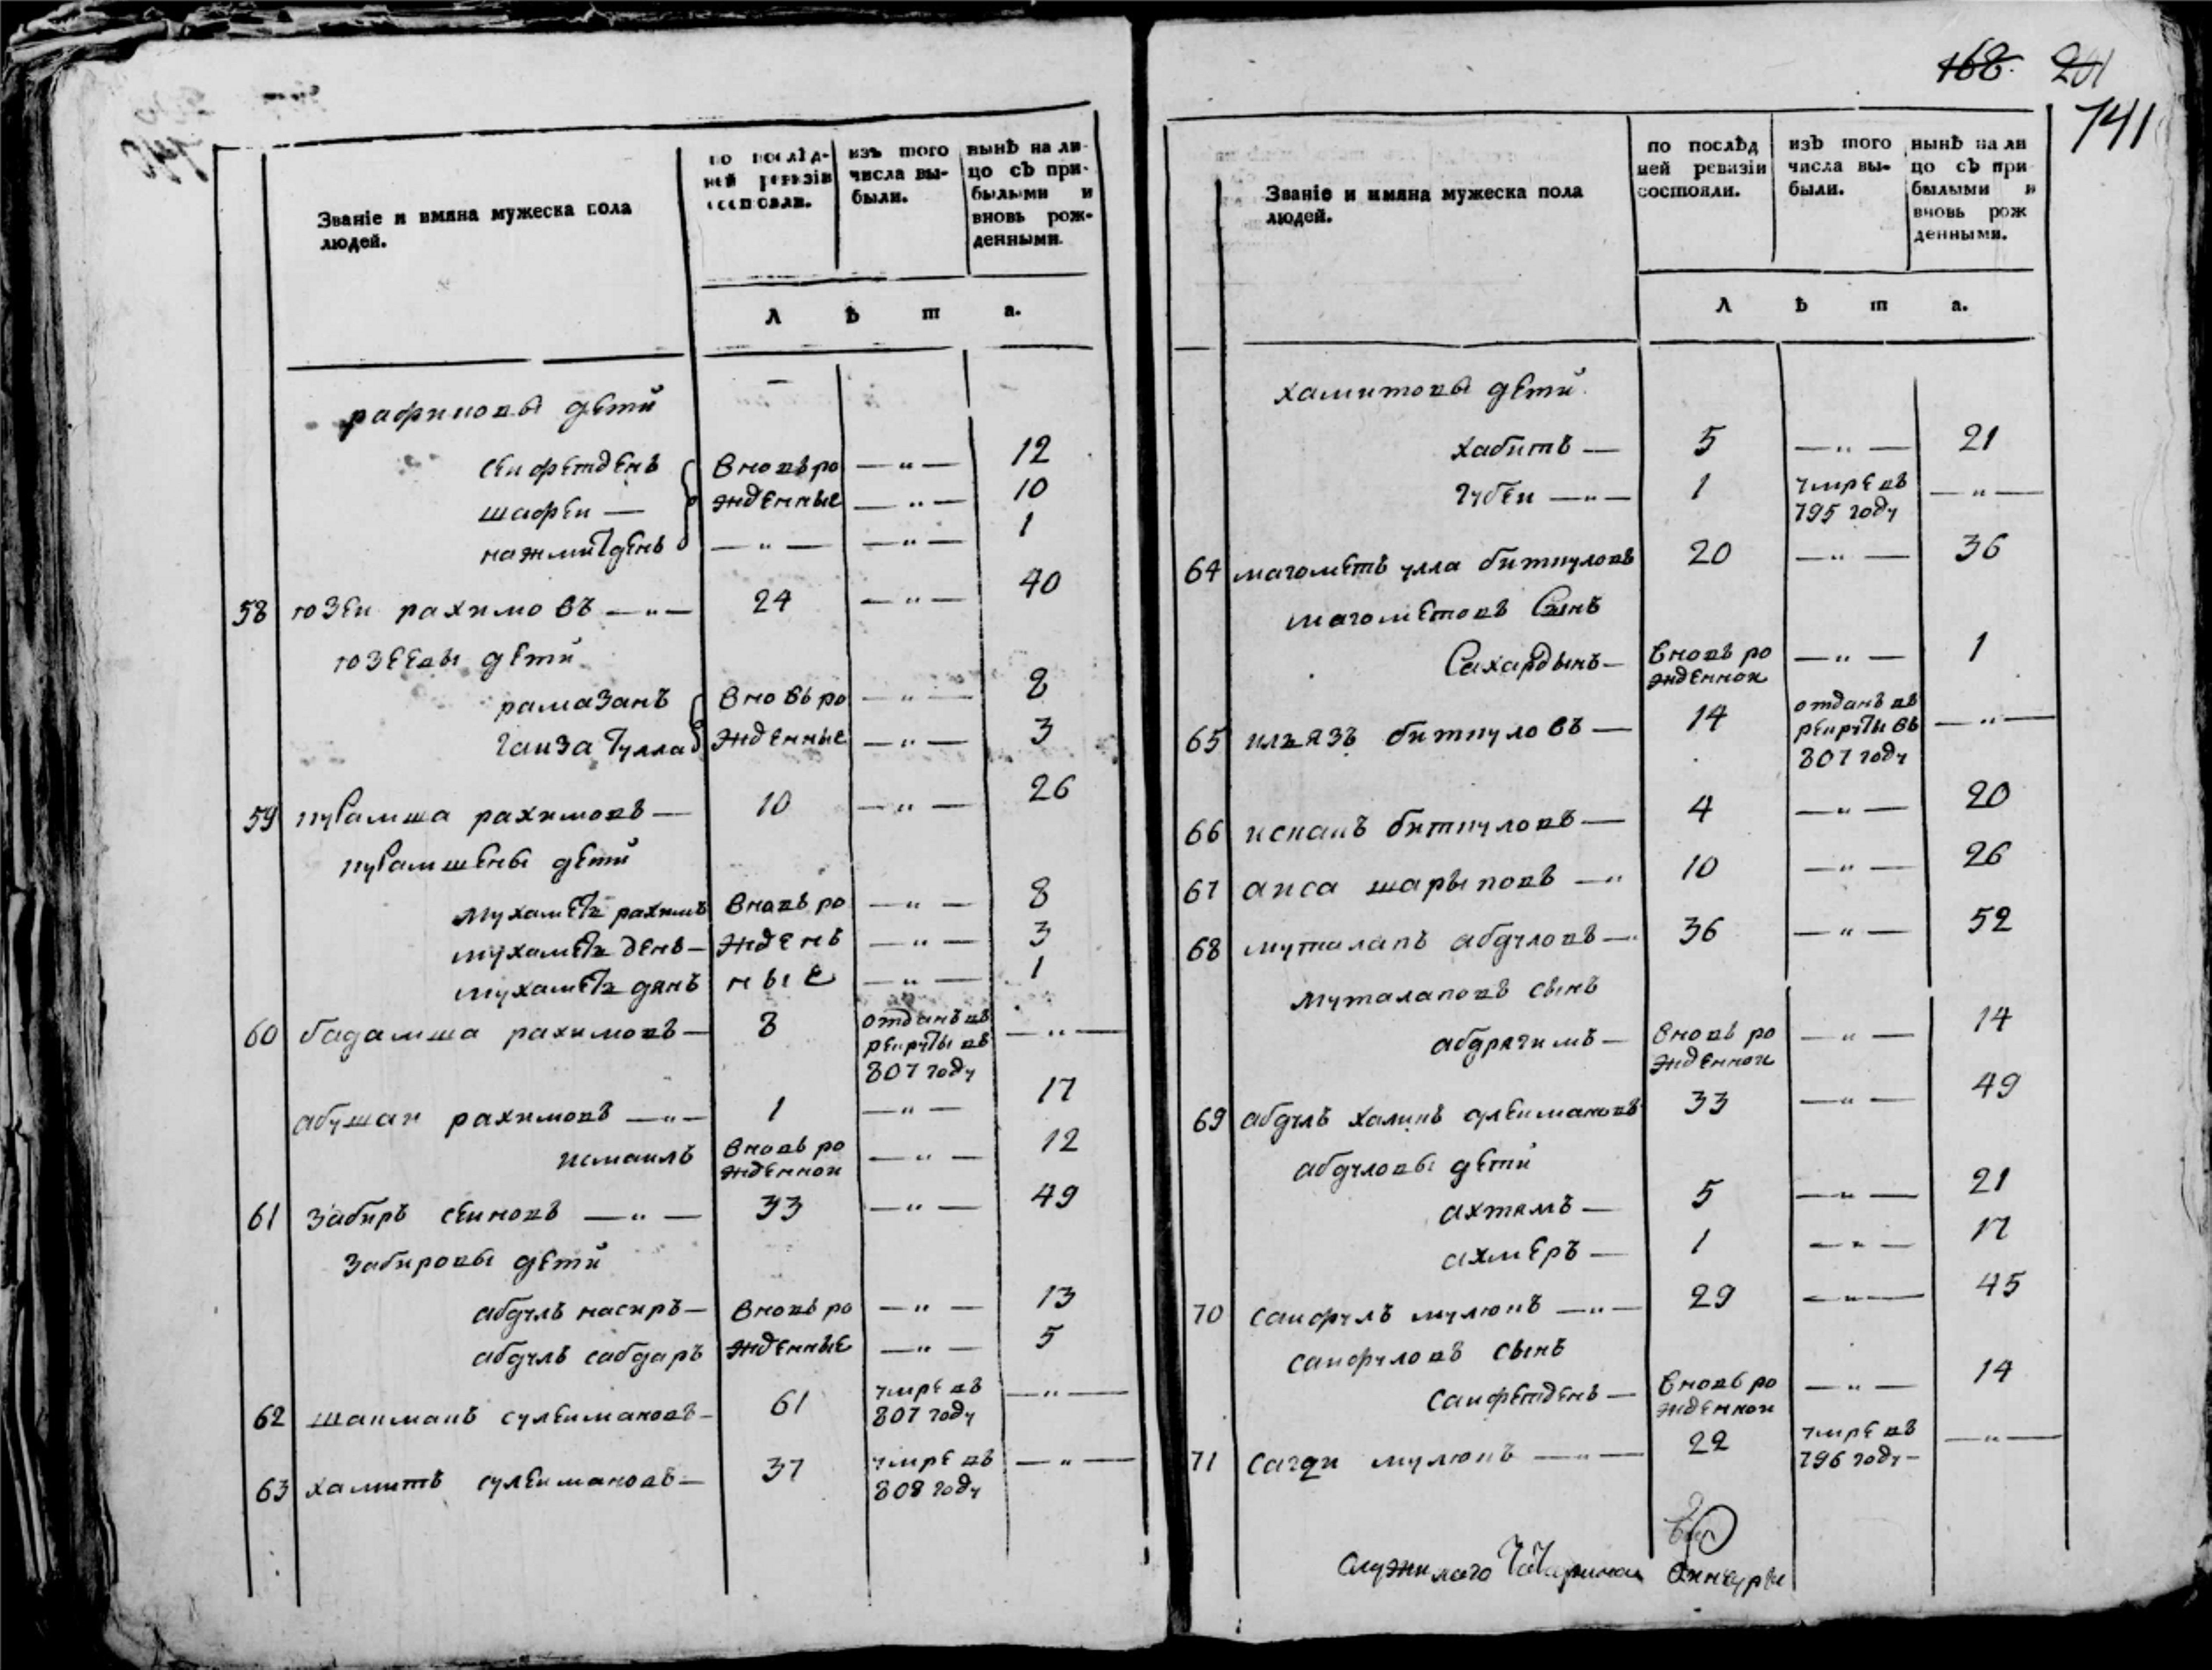 Званіе и имяна мужеска пола
людей.
по послѣд-
ней ревизіи
состояли.
изъ того
числа вы-
были.
нынѣ на ли-
цо съ при-
былыми и
вновь рож-
денными.
Л ѣ т а.
рафиковы дети
сеифетденъ вновь ро 12
шафеи жденные 10
нажмитденъ 1
58 юзеи рахимовъ 24 40
юзеевы дети
рамазанъ вновь ро 8
гаизатулла жденные 3
59 рахимовъ 10 26
дети
мухаметъ рахимъ вновь ро 8
мухаметъ денъ жденъ 3
мухаметъ дянъ ные 1
60 бадамша рахимовъ 8 отданъ въ
рекруты въ
807 году
абушаи рахимовъ 1 17
исмаилъ вновь ро 12
жденнои
61 забиръ сеиновъ 33 49
забировы дети
абдулъ насиръ вновь ро 13
абдулъ сабдаръ жденные 5
62 шаиманъ сулеимановъ 61 умре въ
807 году
63 хамитъ сулеимановъ 37 умре въ
808 году
168. 201
741
Званіе и имяна мужеска пола
людей.
по послѣд
ней ревизіи
состояли.
изъ того
числа вы-
были.
нынѣ на ли
цо съ при
былыми и
вновь рож
денными.
Л ѣ т а.
хамитовы дети
хабитъ 5 21
губеи 1 умре въ
795 году
64 магометъ улла биткуловъ 20 36
магометовъ сынъ
сахардынъ вновь ро 1
жденнои
65 илъязъ биткуловъ 14 отданъ въ
рекруты въ
807 году
66 искакъ биткуловъ 4 20
67 аиса шарыповъ 10 26
68 муталапъ абдуловъ 36 52
муталаповъ сынъ
абдрягимъ вновь ро 14
жденнои
69 абдулъ халикъ сулеимановъ 33 49
абдуловы дети
ахтямъ 5 21
ахмеръ 1 17
70 саифулъ мулюкъ 29 45
саифуловъ сынъ
саифетденъ вновь ро 14
жденнои
71 сагди мулюкъ 22 умре въ
796 году
служилого татарина